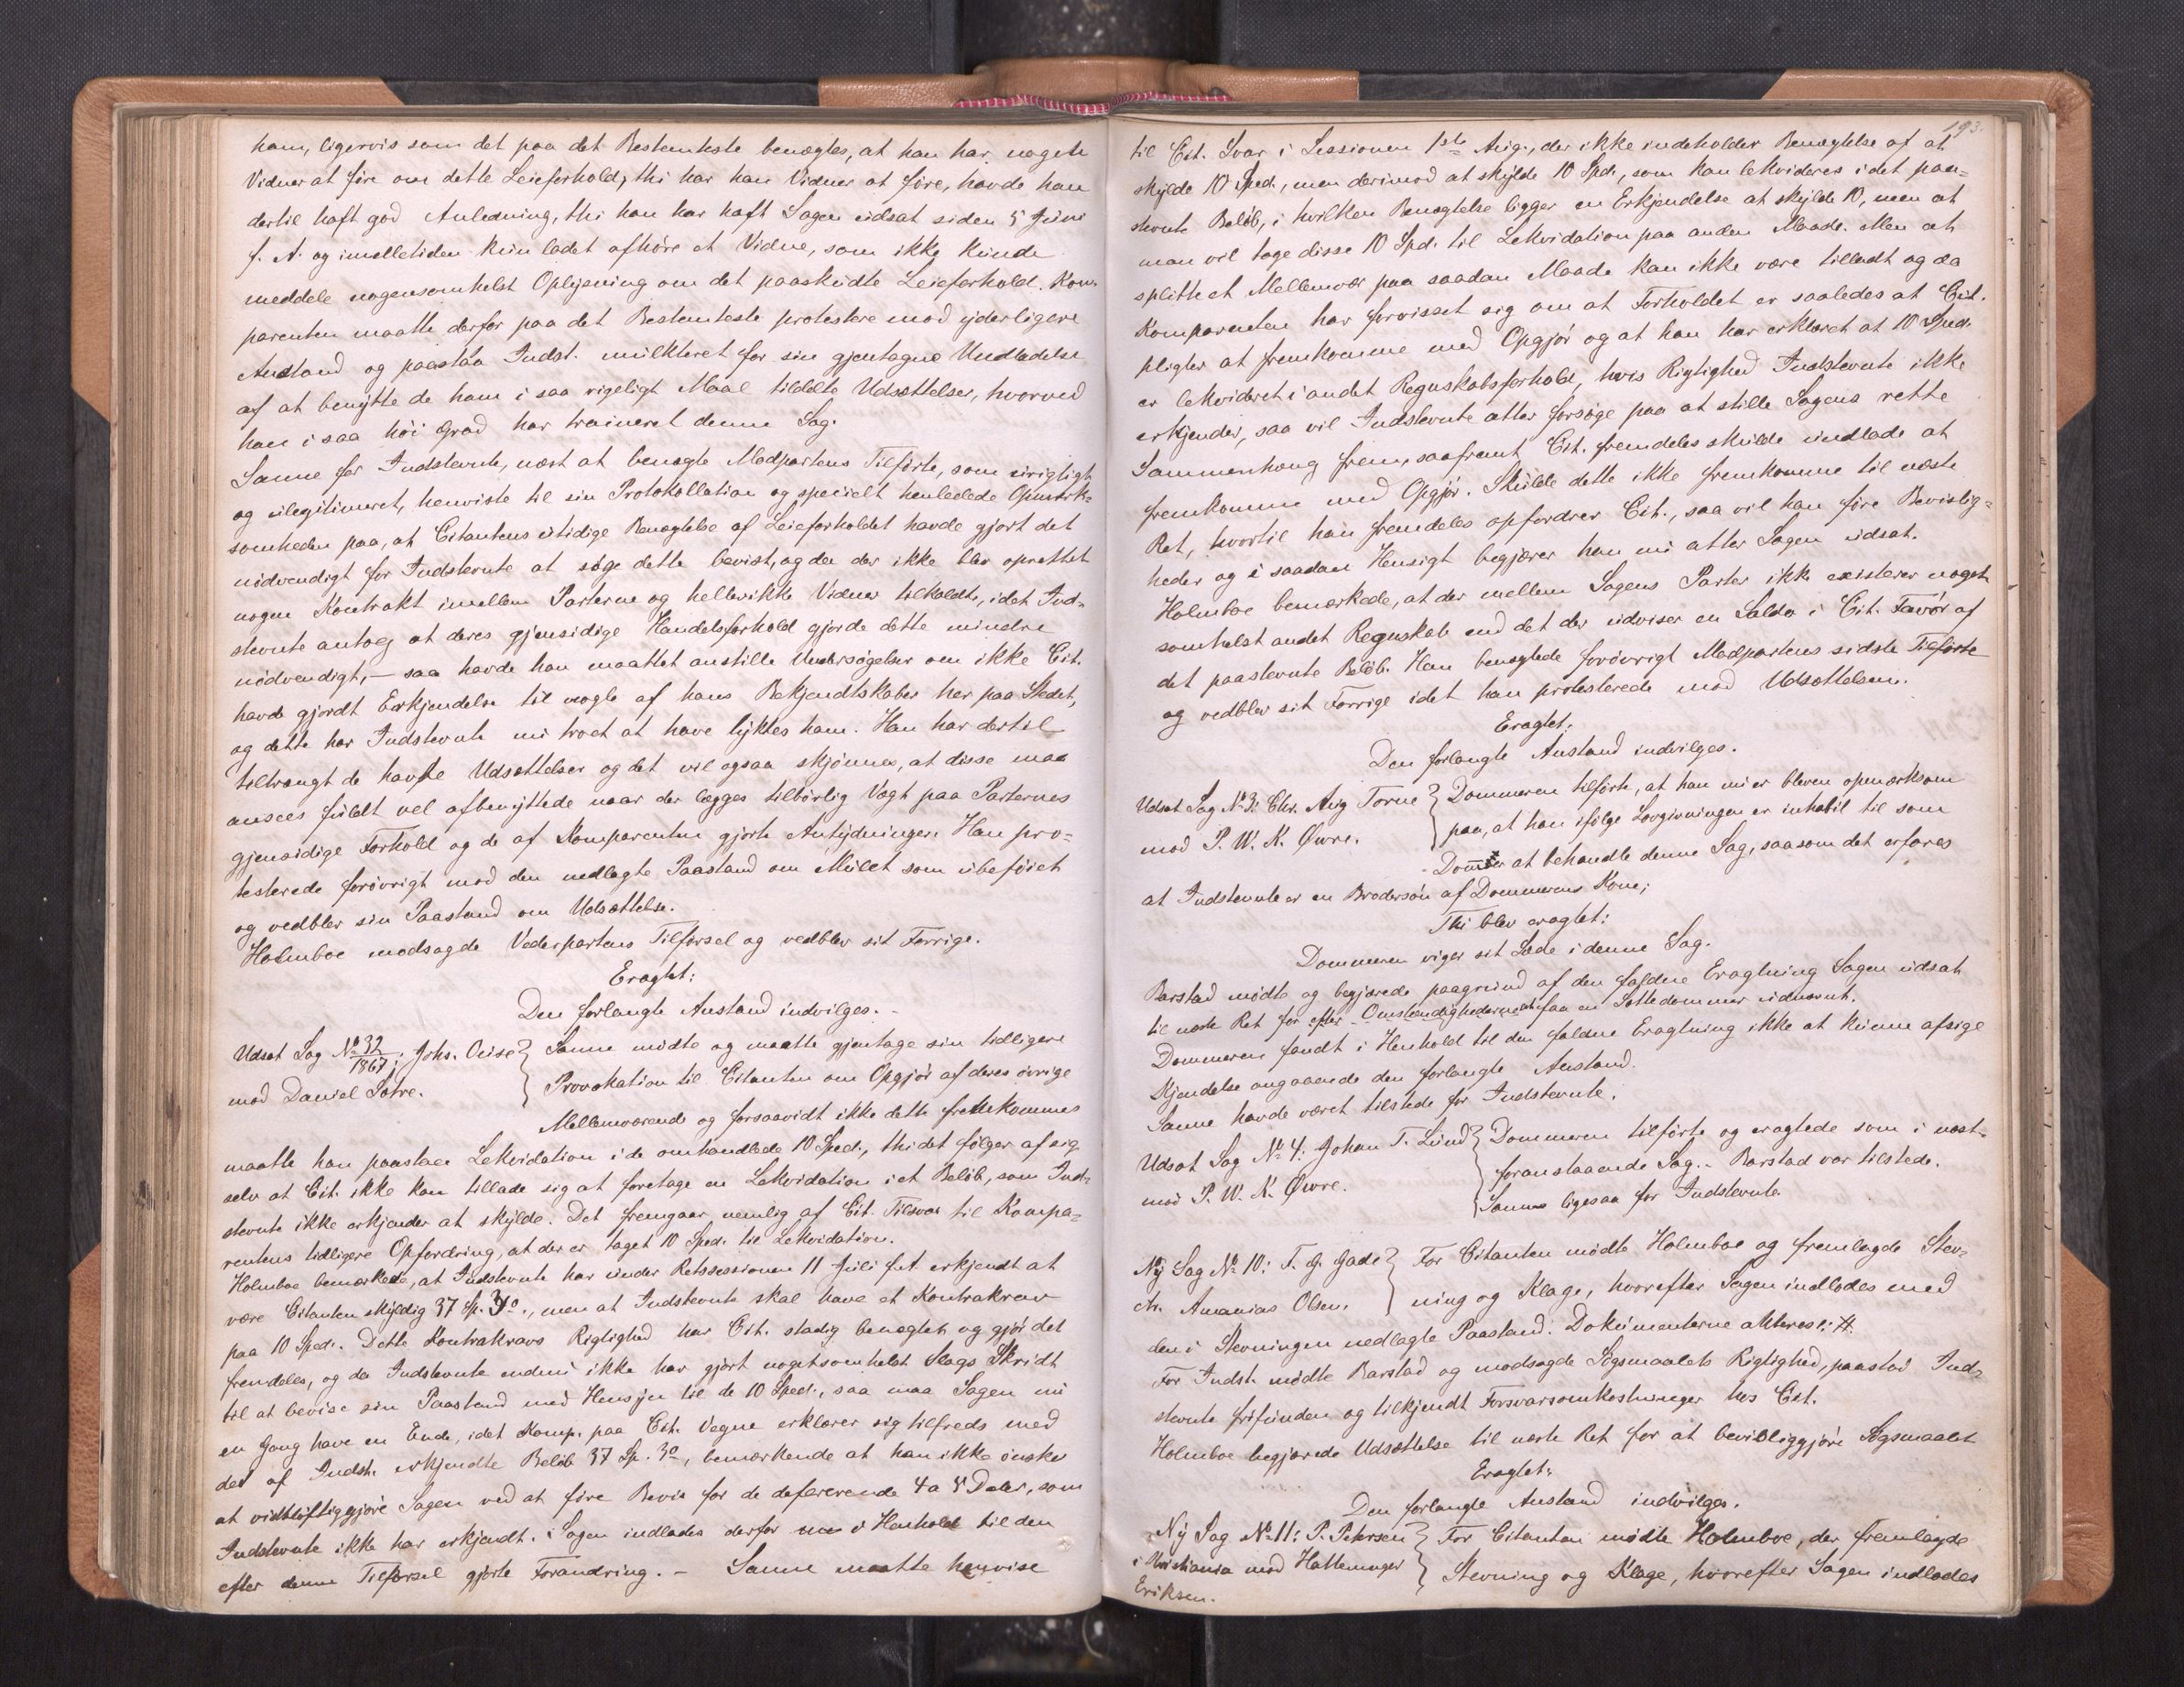 ham, ligervis som det paa det Bestemteste benægtes, at han har nogen
Vidner at före om dette Leieforhold, thi har han Vidner at före, havde han
dertil haft god Anledning, thi han har haft Sagen udsat siden 5 Juni
f. A. og imidlertiden kun ladet afhöre et Vidne, som ikke kunde
meddele nogensomhelst Oplysning om det paaskudte Leieforhold. Kom-
parenten maatte derfor paa det Bestemteste protestere mod yderligere
Anstand og paastaa Indst. mulkteret for sin gjentagne Undladelse
af at benytte de ham i saa rigeligt Maal tildelte Udsættelser, hvorved
han i saa höi Grad har traineret denne Sag.
Sanne for Indstevnte, næst at benægte Modpartens Tilförte, som urigtigt
og ulegitimeret, henviste til sin Protokollation og specielt henledede Opmærk-
somheden paa, at Citantens utidige Benægtelse af Leieforholdet havde gjort det
nödvendigt for Indstevnte at söge dette bevist, og da der ikke blev oprettet
nogen Kontrakt imellem Parterne og hellerikke Vidner tilkaldt, idet Ind-
stevnte antog at deres gjensidige Handelsforhold gjorde dette mindre
nödvendigt, — saa havde han maattet anstille Undersögelser om ikke Cit.
havde gjordt Erkjendelse til nogle af hans Bekjendtskaber her paa Stedet,
og dette har Indstevnte nu troet at have lyktes ham. Han har dertil
tiltrængt de havte Udsættelser og det vil ogsaa skjönnes, at disse maa
ansees fuldt vel afbenyttede naar der lægges tilbörlig Vægt paa Parternes
gjensidige Forhold og de af Komparenten gjorte Antydninger. Han pro-
testerede forövrigt mod den nedlagte Paastand om Mulct som ubeföiet
og vedblev sin Paastand om Udsættelse.
Holmboe modsagde Vederpartens Tilförsel og vedblev sit Forrige.
Eragtet:
Den forlangte Anstand indvilges. -
Udsat Sag No 32/1867: Johs. Ouise } Sanne mödte og maatte gjentage sin tidligere
mod Daniel Sotre. } Provokation til Citanten om Opgjör af deres övrige
Mellemværende og forsaavidt ikke dette fremkommes
maatte han paastaa Lekvidation i de omhandlede 10 Spd., thi det fölger af sig
selv at Cit. ikke kan tillade sig at foretage en Lekvidation i et Belöb, som Ind-
stevnte ikke erkjender at skylde. Det fremgaar nemlig af Cit. Tilsvar til Kompa-
rentens tidligere Opfordring, at der er taget 10 Spd. til Lekvidation.
Holmboe bemærkede, at Indstevnte har under Retssessionen 11 Juli f. A. erkjendt at
være Citanten skyldig 37 Sp. 3o., men at Indstevnte skal have et Kontrakrav
paa 10 Spd. Dette Kontrakravs Rigtighed har Cit. stadig benægtet og gjör det
fremdeles, og da Indstevnte endnu ikke har gjort nogetsomhelst Slags Skridt
til at bevise sin Paastand med Hensyn til de 10 Spd., saa maa Sagen nu
en Gang have en Ende, idet Komp. paa Cit. Vegne erklærer sig tilfreds med
det af Indst. erkjendte Belöb 37 Sp. 3o, bemærkende at han ikke önsker
at vidtlöftiggjöre Sagen ved at före Bevis for de defererende 4 a 5 Daler, som
Indstevnte ikke har erkjendt. Sagen indlades derfor i Henhold til den
efter denne Tilförsel gjorte Forandring. - Sanne maatte henvise
193.
til Cit. Svar i Sessionen 1ste Aug., der ikke indeholder Benægtelse af at
skylde 10 Spd., men derimod at skylde 10 Spd., som kan lekvideres i det paa-
stevnte Belöb, i hvilken Benægtelse ligger en Erkjendelse at skylde 10, men at
man vil tage disse 10 Spd. til Lekvidation paa anden Maade. Men at
splitte et Mellemvær paa saadan Maade kan ikke være tilladt og da
Komparenten har forvisset sig om at Forholdet er saaledes at Cit.
pligter at fremkomme med Opgjör og at han har erklæret at 10 Spd.
er lekvideret i andet Regnskabsforhold, hvis Rigtighed Indstevnte ikke
erkjender, saa vil Indstevnte atter forsöge paa at stille Sagens rette
Sammenhæng frem, saafremt Cit. fremdeles skulde undlade at
fremkomme med Opgjör. Skulde dette ikke fremkomme til næste
Ret, hvortil han fremdeles opfordrer Cit., saa vil han före Bevislig-
heder og i saadan Hensigt begjærer han nu atter Sagen udsat.
Holmboe bemærkede, at der mellem Sagens Parter ikke existerer noget
somhelst andet Regnskab end det der udviser en Saldo i Cit. Favör af
det paastevnte Belöb. Han benægtede forövrigt Modpartens sidste Tilförte
og vedblev sit Forrige idet han protesterede mod Udsættelsen.
Eragtet:
Den forlangte Anstand indvilges.
Udsat Sag No 3: Chr. Aug Torne } Dommeren tilförte, at han nu er bleven opmærksom
mod P. W. K. Øwre. } paa, at han ifölge Lovgivningen er inhabil til som
Dommer at behandle denne Sag, saasom det erfares
at Indstevnte er en Brodersön af Dommerens Kone;
Thi blev eragtet:
Dommeren viger sit Sæde i denne Sag.
Barstad mödte og begjærede paagrund af den faldne Eragtning Sagen udsat
til næste Ret for efter Omstændighederne at faa en Sættedommer udnævnt.
Dommeren fandt i Henhold til den faldne Eragtning ikke at kunne afsige
Kjendelse angaaende den forlangte Anstand.
Sanne havde været tilstede for Indstevnte.
Udsat Sag No 4: Johan T. Lund } Dommeren tilförte og eragtede som i næst-
mod P. W. K. Øwre. } foranstaaende Sag. - Barstad var tilstede.
Sanne ligesaa for Indstevnte.
Ny Sag No 10: T. G. Gade } For Citanten mödte Holmboe og fremlagde Stev-
ctr. Amanias Olsen. } ning og Klage, hvorefter Sagen indlodes med
den i Stevningen nedlagte Paastand. Dokumenterne akteres l: #.
For Indst. mödte Barstad og modsagde Sögsmaalets Rigtighed, paastod Ind-
stevnte frifunden og tilkjendt Forsvarsomkostninger hos Cit.
Holmboe begjærede Udsættelse til næste Ret for at bevisliggjöre Sögsmaalet
Eragtet:
Den forlangte Anstand indvilges.
Ny Sag No 11: P. Petersen } For Citanten mödte Holmboe, der fremlagde
i Christiania mod Hattemager } Stevning og Klage, hvorefter Sagen indlodes
Eriksen.